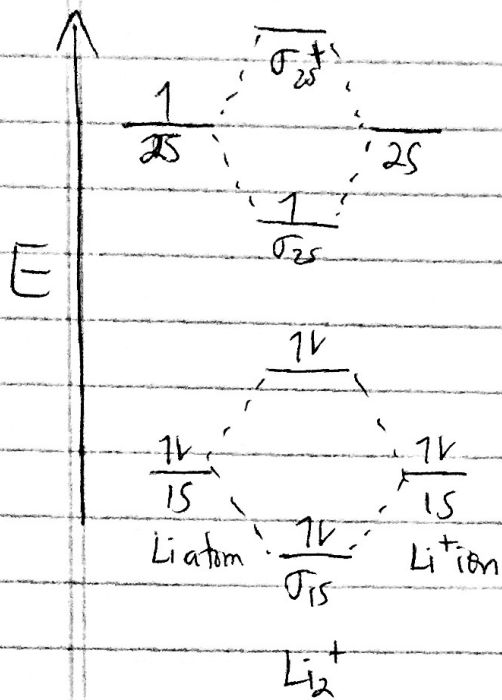 σ2s+
1
2S
2S
1
σ2s
E
1V
1V
1S
1V
1S
Li atom
1V
σ1s
Li+ion
Li2+